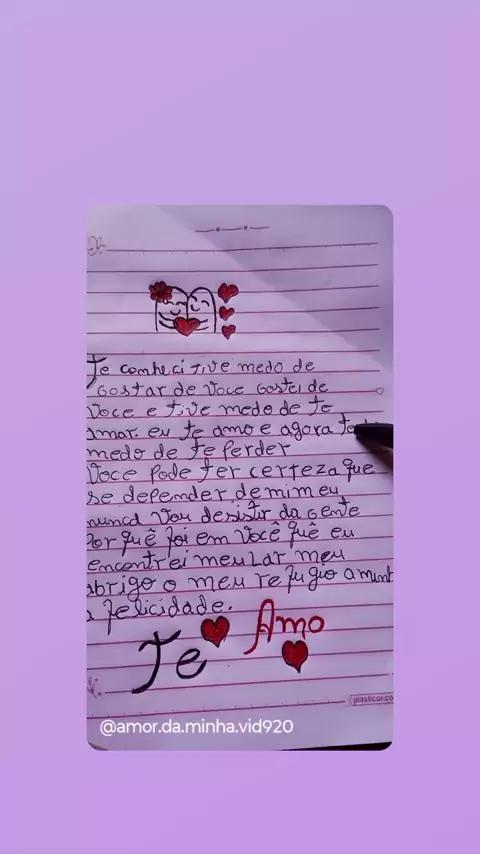 Te conheci tive medo de
Gostar de voce Gostei de
Voce e tive medo de te
amar. eu te amo e agora
medo de te perder
Voce pode ter certeza que
se depender de mim eu
nunca vou desistir da Gente
Por quê foi em você quê eu
encontrei meu Lar meu
abrigo o meu refugio a minh
a felicidade.
Te Amo
@amor.da.minha.vid920